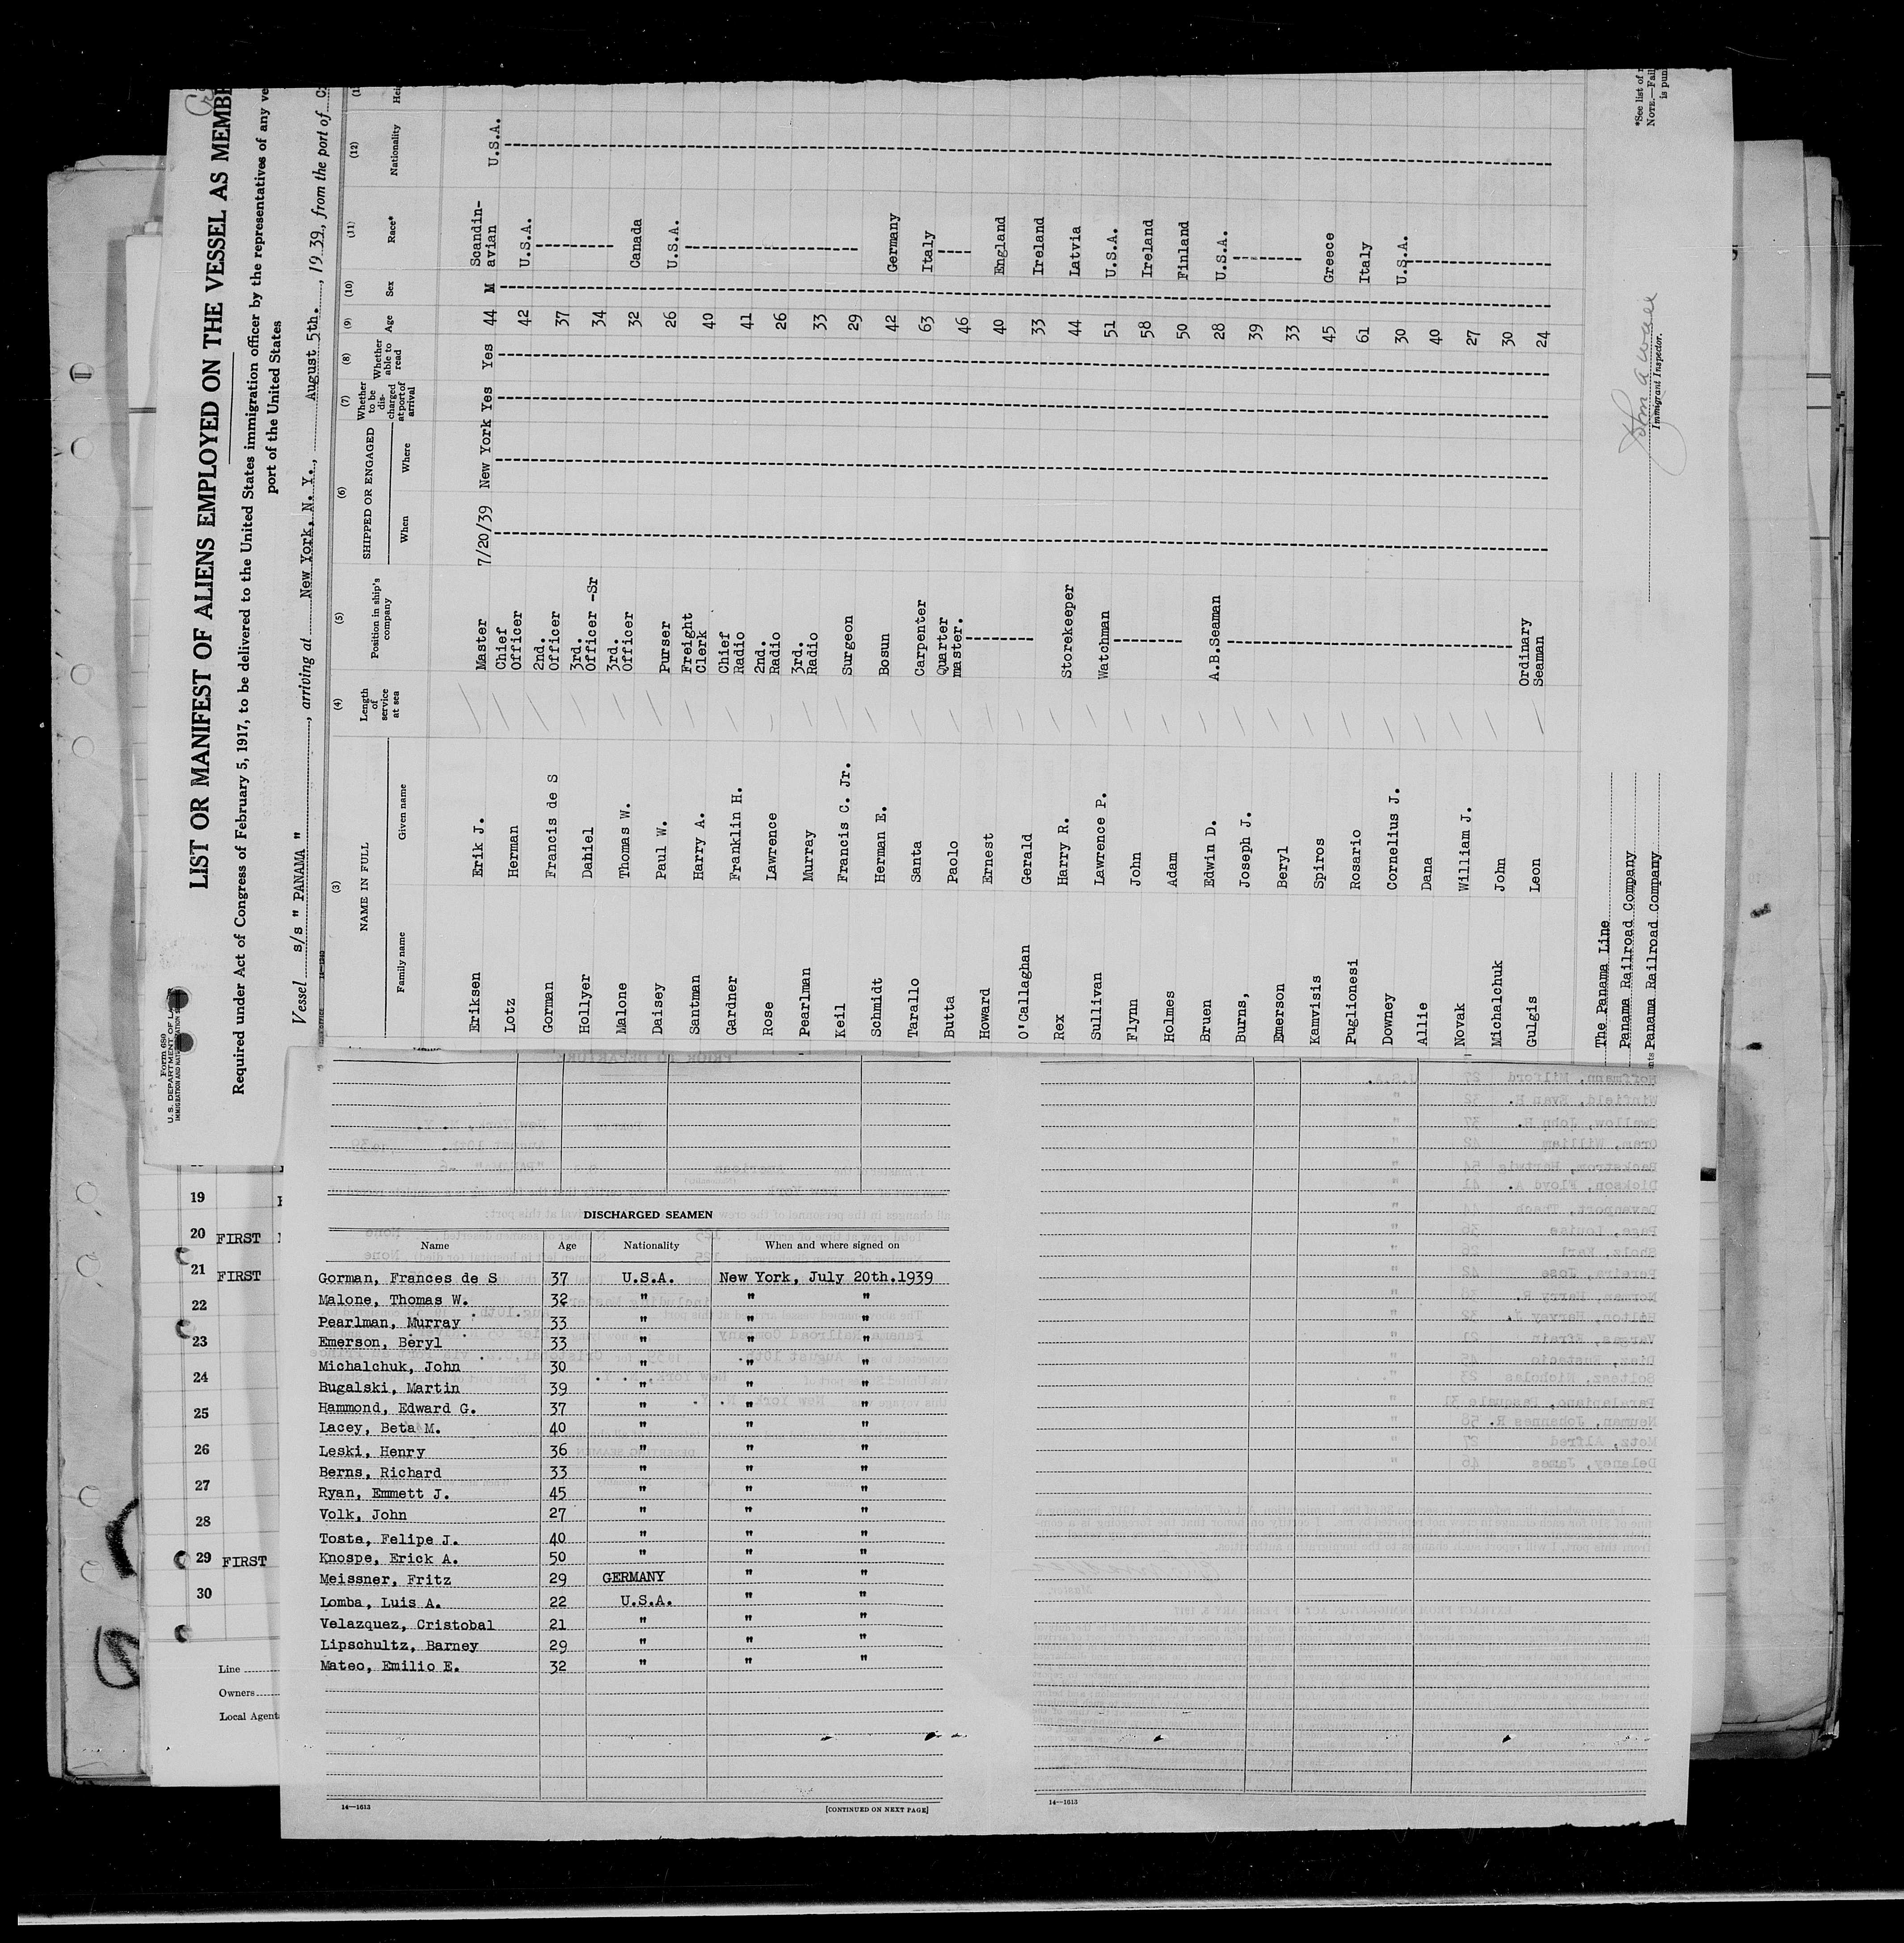 Form 680
U.S. DEPARTMENT OF LABOR
LIST OR MANIFEST OF ALIENS EMPLOYED ON THE VESSEL AS MEMBE
Required under Act of Congress of February 5, 1917, to be delivered to the United States immigration officer by the representatives of any ve
port of the United States
Vessel s/s " PANAMA ", arriving at New York, N. Y., August 5th., 1939, from the port of
(3) (4) (5) (6) (7) (8) (9) (10) (11) (12)
NAME IN FULL Length of service at sea Position in ship's company SHIPPED OR ENGAGED Whether to be discharged at port of arrival Whether able to read Age Sex Race* Nationality
Family name Given name When Where
Eriksen Erik J. Master 7/20/39 New York Yes Yes 44 M Scandin-avian U.S.A.
Lotz Herman Chief Officer 42 U.S.A.
Gorman Francis de S 2nd. Officer 37
Hollyer Daniel 3rd. Officer -Sr 34
Malone Thomas W. 3rd. Officer 32 Canada
Daisey Paul W. Purser 26 U.S.A.
Santman Harry A. Freight Clerk 40
Gardner Franklin H. Chief Radio 41
Rose Lawrence 2nd. Radio 26
Pearlman Murray 3rd. Radio 33
Keil Francis C. Jr. Surgeon 29
Schmidt Herman E. Bosun 42 Germany
Tarallo Santa Carpenter 63 Italy
Butta Paolo Quarter master. 46
Howard Ernest 40 England
O'Callaghan Gerald 33 Ireland
Rex Harry R. Storekeeper 44 Latvia
Sullivan Lawrence P. Watchman 51 U.S.A.
Flynn John 58 Ireland
Holmes Adam 50 Finland
Bruen Edwin D. A.B.Seaman 28 U.S.A.
Burns, Joseph J. 39
Emerson Beryl 33
Kamvisis Spiros 45 Greece
Puglionesi Rosario 61 Italy
Downey Cornelius J. 30 U.S.A.
Allie Dana 40
Novak William J. 27
Michalchuk John 30
Gulgis Leon Ordinary Seaman 24
The Panama Line
Panama Railroad Company
Panama Railroad Company
Immigrant Inspector.
*See list of
NOTE.—Fail
is pun
19
20 FIRST
21 FIRST
22
23
24
25
26
27
28
29 FIRST
30
Line
Owners
Local Agent
DISCHARGED SEAMEN
Name Age Nationality When and where signed on
Gorman, Frances de S 37 U.S.A. New York, July 20th.1939
Malone, Thomas W. 32 " " "
Pearlman, Murray 33 " " "
Emerson, Beryl 33 " " "
Michalchuk, John 30 " " "
Bugalski, Martin 39 " " "
Hammond, Edward G. 37 " " "
Lacey, Beta M. 40 " " "
Leski, Henry 36 " " "
Berns, Richard 33 " " "
Ryan, Emmett J. 45 " " "
Volk, John 27 " " "
Toste, Felipe J. 40 " " "
Knospe, Erick A. 50 " " "
Meissner, Fritz 29 GERMANY " "
Lomba, Luis A. 22 U.S.A. " "
Velazquez, Cristobal 21 " " "
Lipschultz, Barney 29 " " "
Mateo, Emilio E. 32 " " "
14—1613
[CONTINUED ON NEXT PAGE]
14—1613